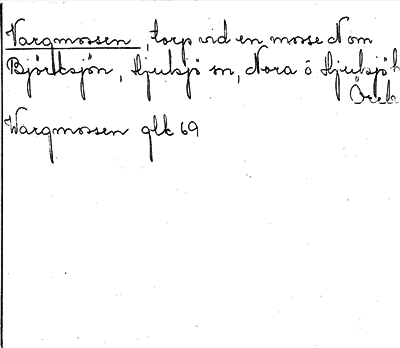 Vargmossen, torp vid en mosse N om
Björksjön, Hjulsjö sn, Nora o Hjulsjö h
Öreb
Wargmossen glk 69